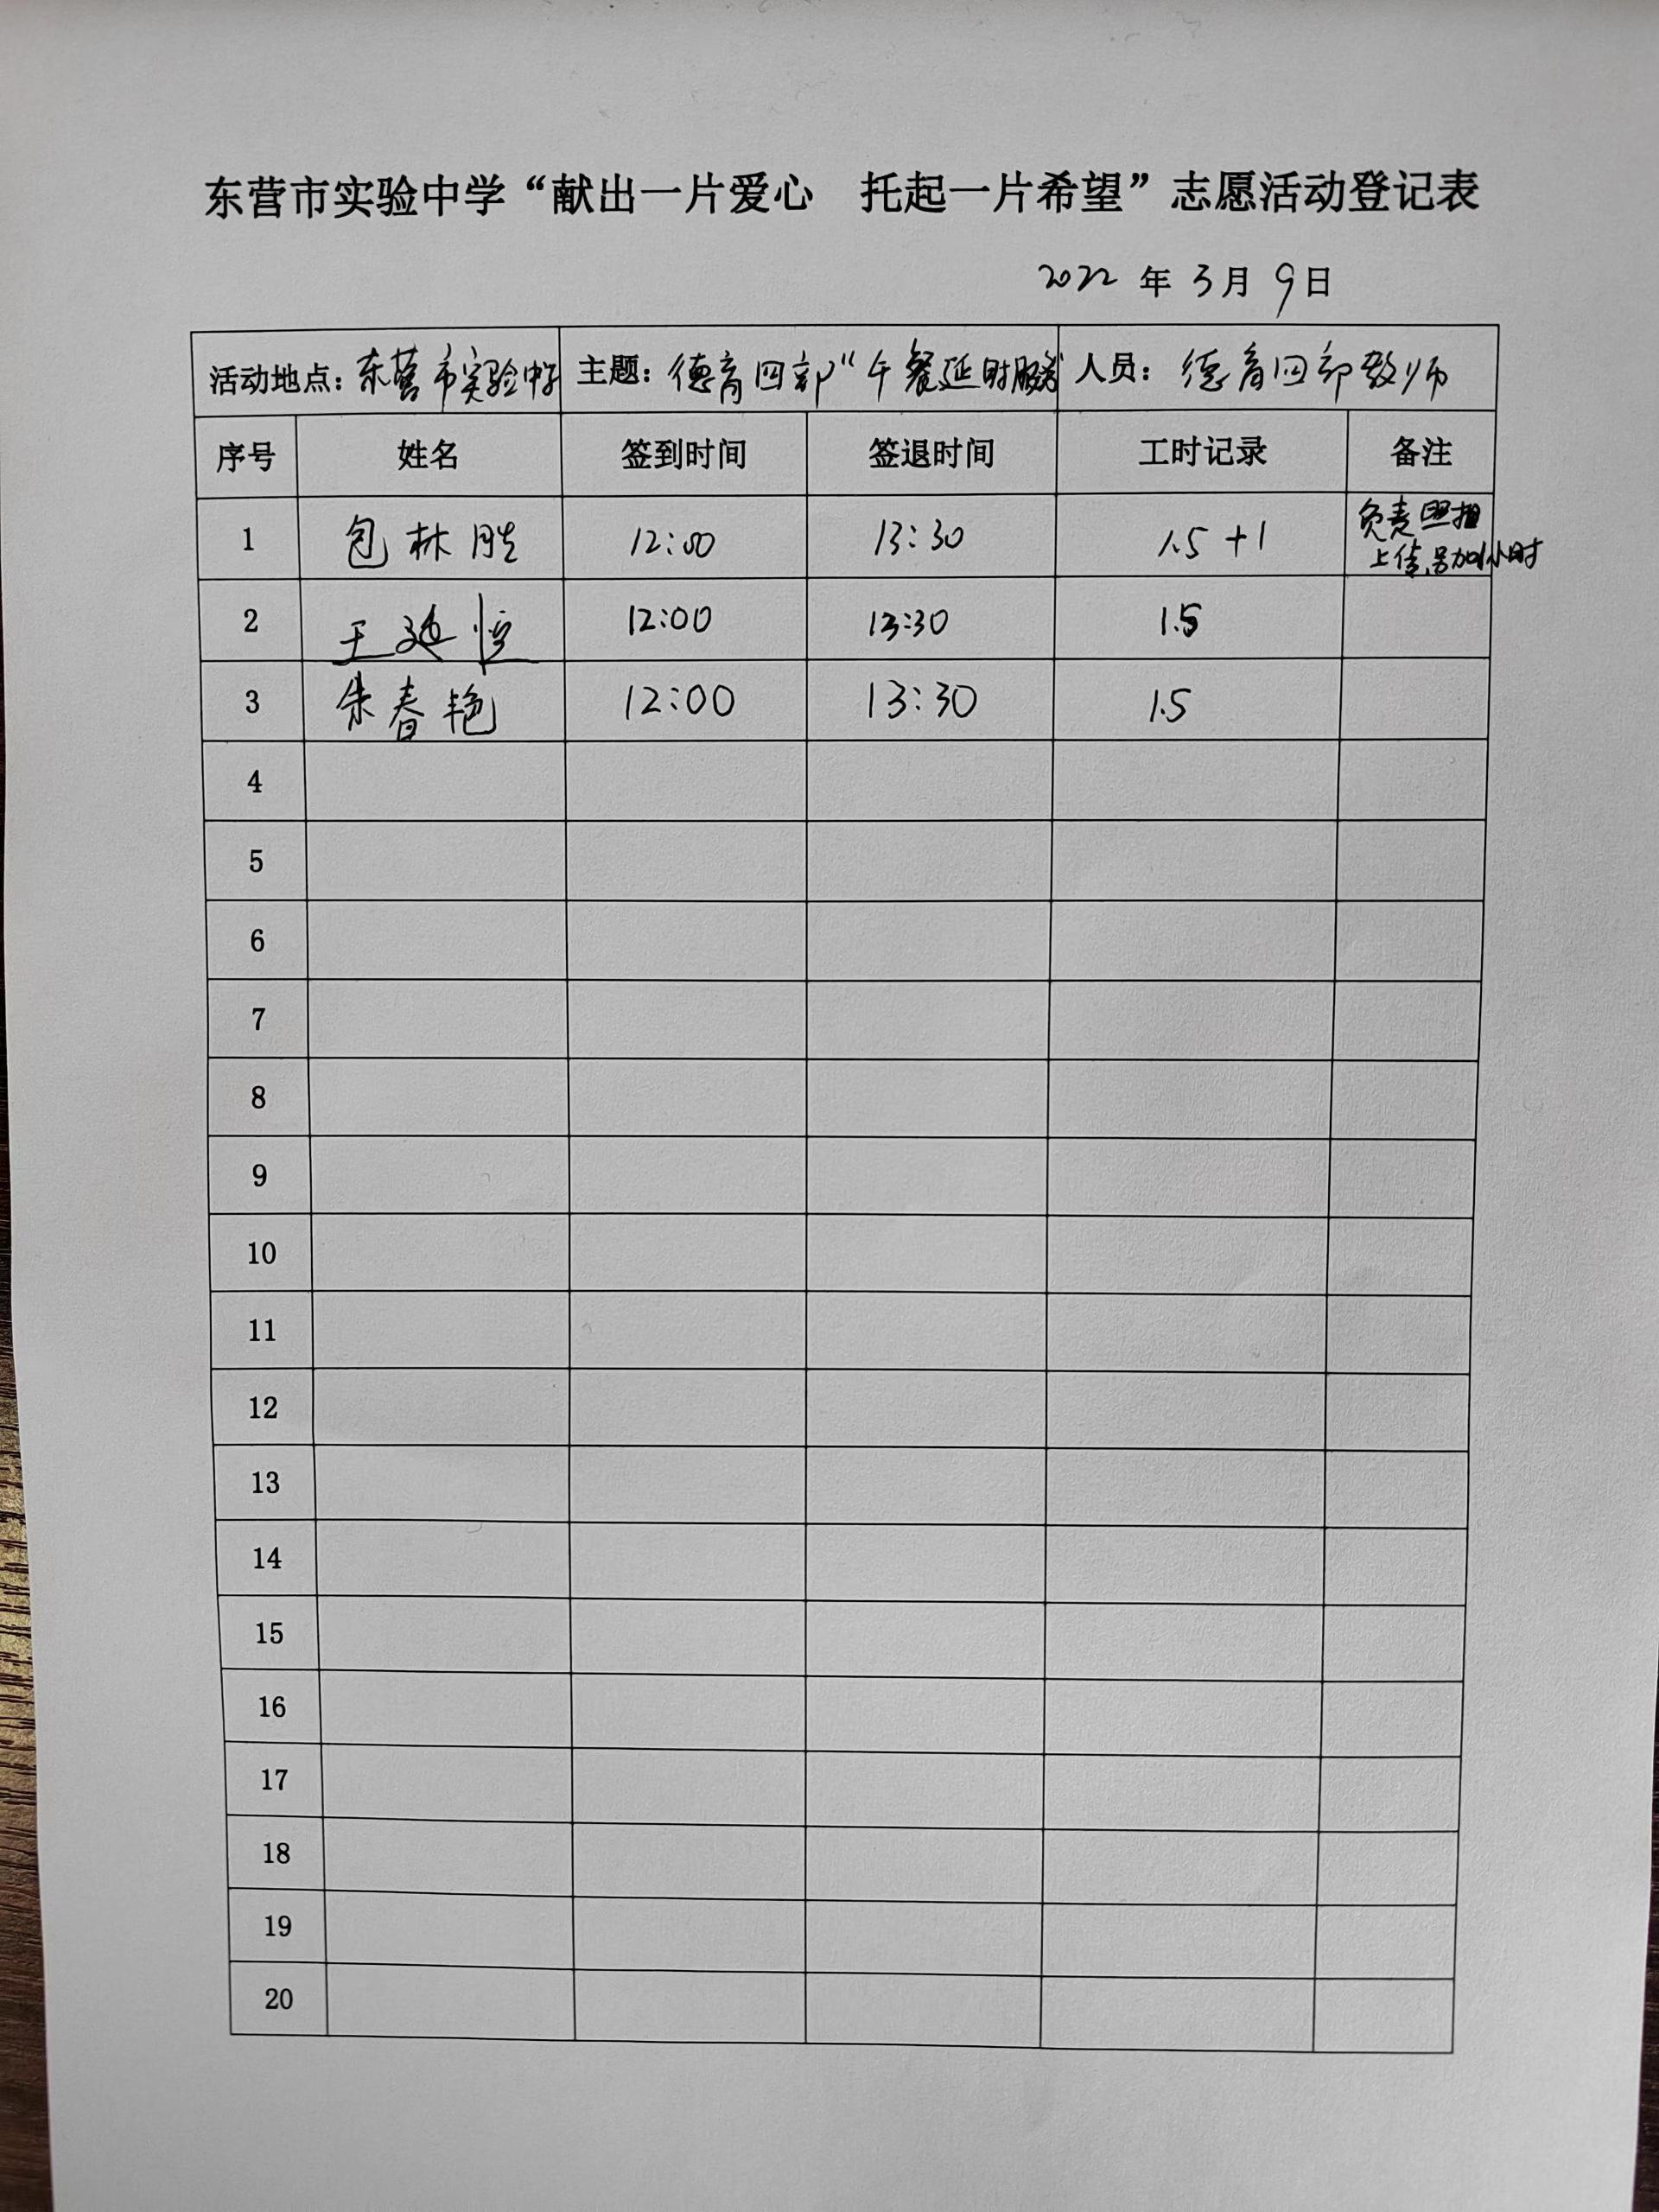 东营市实验中学“献出一片爱心 托起一片希望”志愿活动登记表
2022 年 3月 9日
活动地点：东营市实验中学 主题：德育四部“午餐延时服务 人员：德育四部教师
序号 姓名 签到时间 签退时间 工时记录 备注
1 包林胜 12:00 13:30 1.5 +1 负责照相
上传,另加1小时
2 王延恒 12:00 13:30 1.5
3 朱春艳 12:00 13:30 1.5
4
5
6
7
8
9
10
11
12
13
14
15
16
17
18
19
20